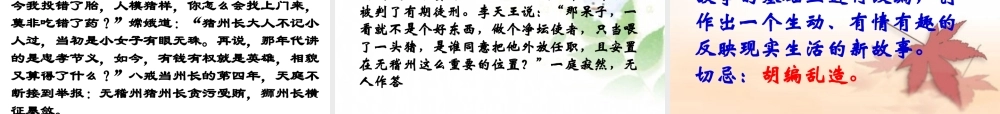 今我投错了胎，人模猪样，你怎么会找上门来，
莫非吃错了药？”嫦娥道：“猪州长大人不记小
人过，当初是小女子有眼无珠。再说，那年代讲
的是忠孝节义，如今，有钱有权就是英雄，相貌
又算得了什么？”八戒当州长的第四年，天庭不
断接到举报：无稽州猪州长贪污受贿，狮州长横
征暴敛。
被判了有期徒刑。李天王说：“那呆子，一
看就不是个好东西，做个净坛使者，只当喂
了一头猪，是谁同意把他外放任职，且安置
在无稽州这么重要的位置？”一庭寂然，无
人作答
作出一个生动、有情有趣的
反映现实生活的新故事。
切忌：胡编乱造。